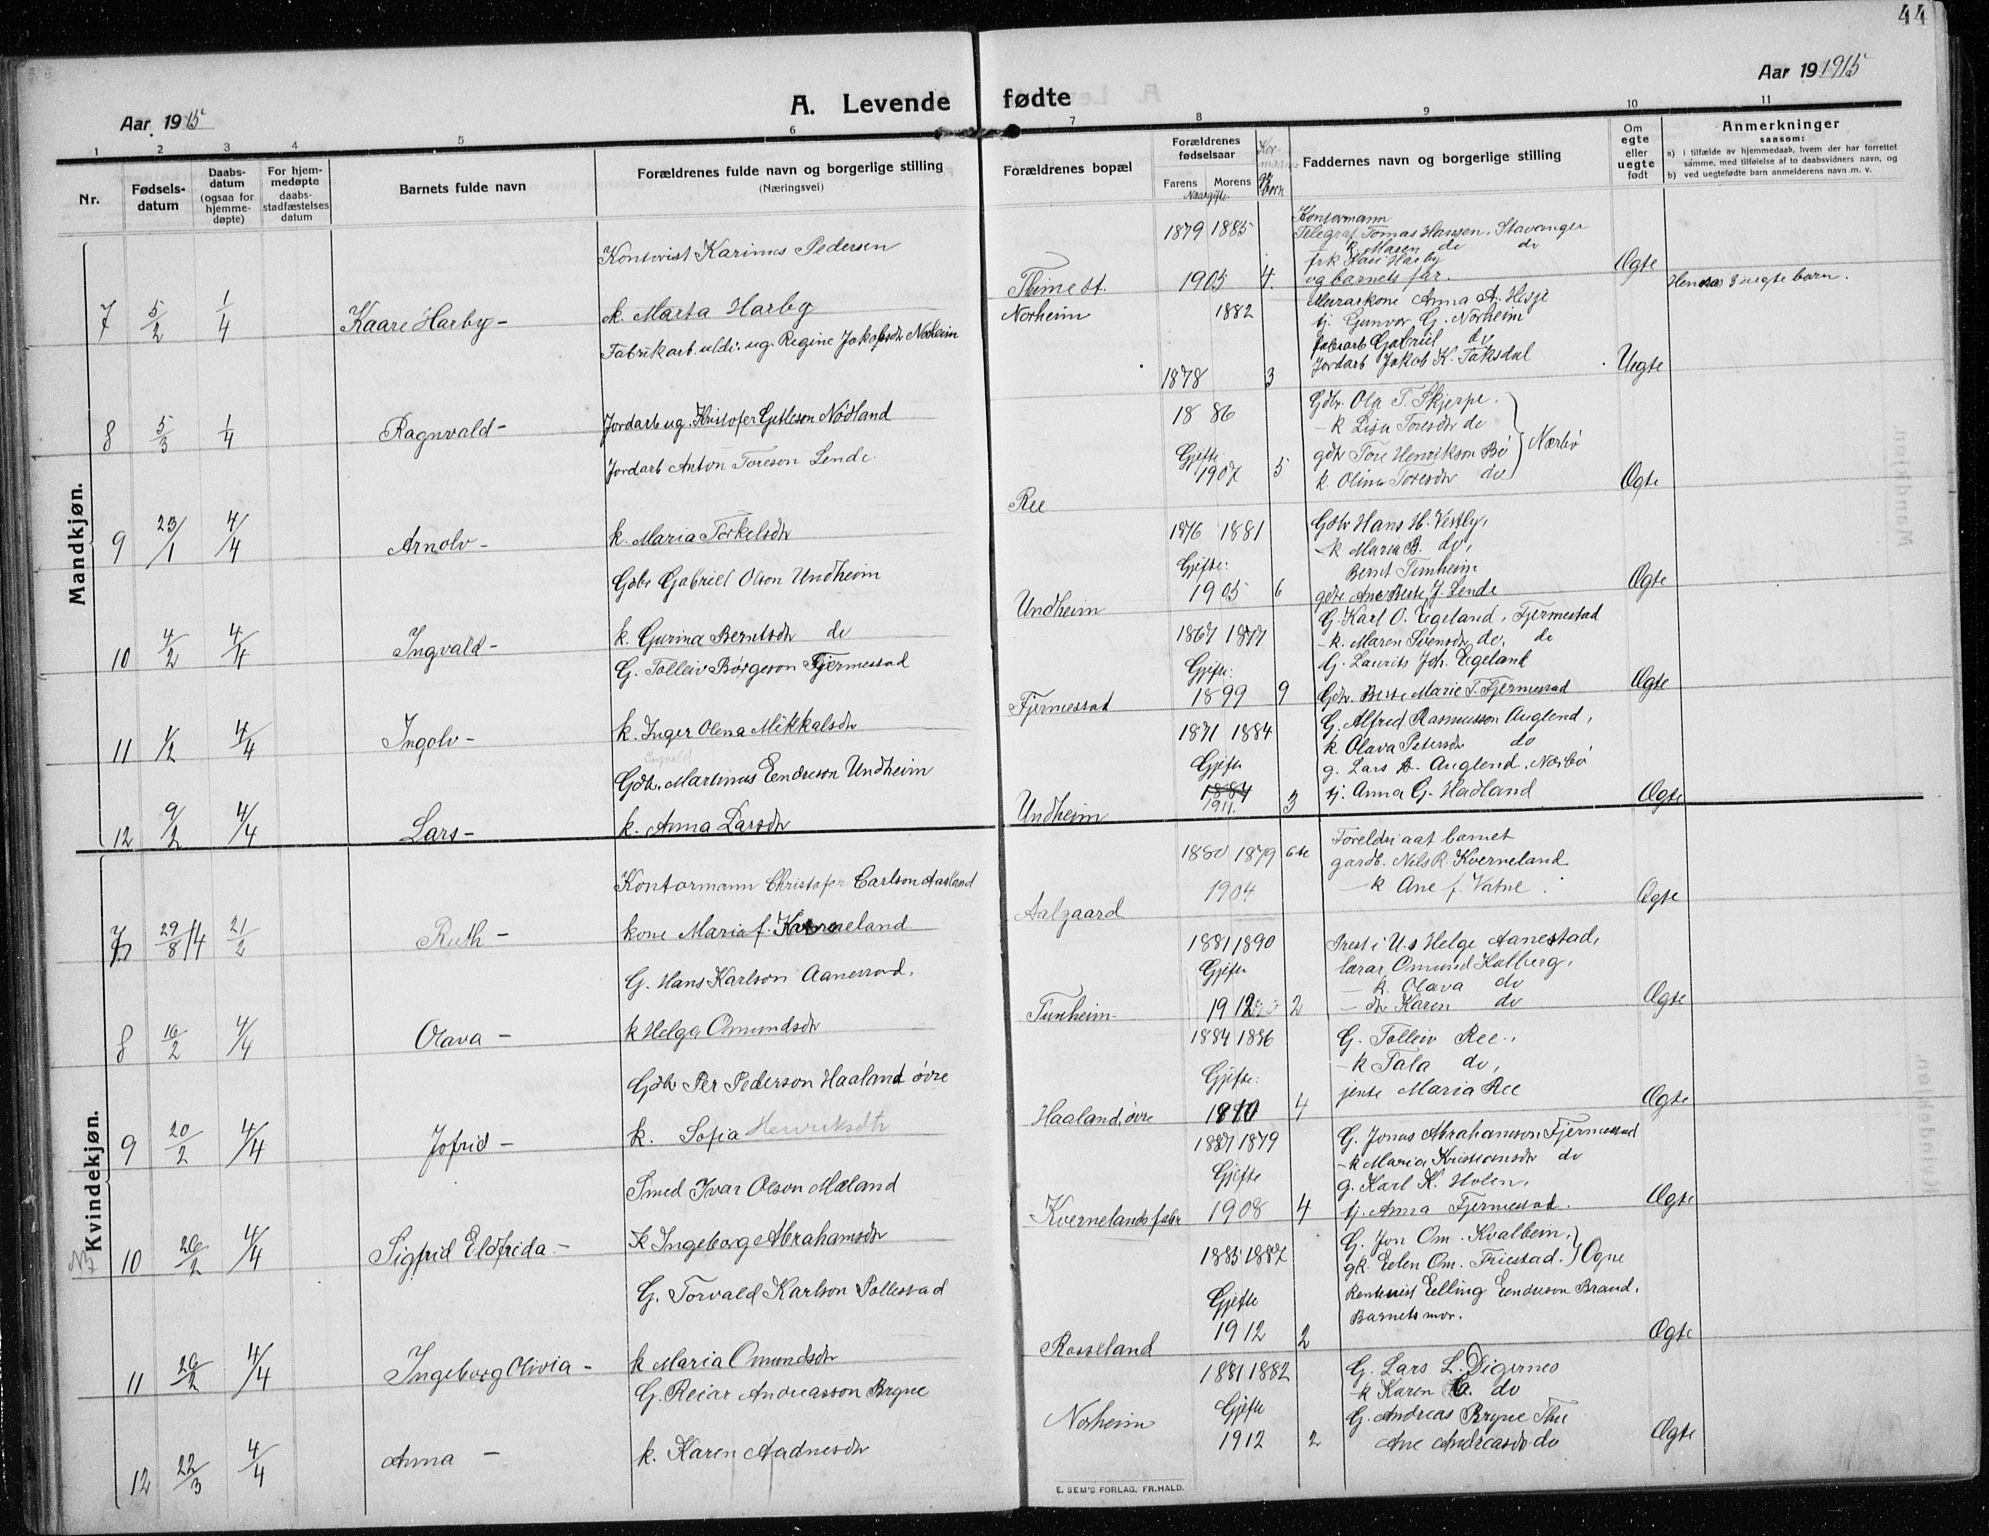 44
Aar 1915
A. Levende fødte
Aar 19 1915
1 2 3 4 5 6 7 8 9 10 11
Nr.
Fødsels-
datum
Daabs-
datum
(ogsaa for
hjemme-
døpte)
For hjem-
medøpte
daabs-
stadfæstelses
datum
Barnets fulde navn
Forældrenes fulde navn og borgerlige stilling
(Næringsvei)
Forældrenes bopæl
Forældrenes
fødselsaar
Farens Morens
Naar gifte
Faddernes navn og borgerlige stilling
Om
egte
eller
uegte
født
Anmerkninger
saasom:
a) i tilfælde av hjemmedaab, hvem der har forrettet
samme, med tilføielse af to daabsvidners navn, og
b) ved uegtefødte barn anmelderens navn m. v.
Mandkjøn.
7 5/2 1/4 Kaare Harby -
Kontorist Karinus Pedersen
k. Marta Harby
Thime st.
1879 1885
1905 4.
Kontormann
Telegraf. Tomas Hansen, Stavanger
k. Maren do do
frk Kari Harby
og barnets far.
Ægte
8 5/3 1/4 Ragnvald -
Fabrikarb. uldv. ug. Regine Jakobsdtr Norheim
Jordarb ug. Kristofer Gitleson Nødland
Norheim
1882
1878 3
Murarkone Anna A. Hesje
tj. Gunvor G. Norheim
fabrarb Gabriel do
Jordarb Jakob K. Taksdal
Uegte
Hennar 3 uegte barn.
9 23/1 4/4 Arnolv -
Jordarb Anton Toreson Lende.
k. Maria Torkelsdtr
Ree
1886
Gjefte
1907 5
Gdbr. Ola T. Skjerpe.
- k Lisa Toresdtr do
gdbr Tore Henrikson Bø
k. Olina Toresdtr do
Nærbø
Ægte
10 4/2 4/4 Ingvald -
Gdbr Gabriel Olson Undheim
k. Gurina Berntsdtr do
Undheim
1876 1881
Gjefte:
1905 6
Gdbr Hans H. Vestly,
- k Maria B. do,
Bernt Tunheim
gdte Ane Berte J. Lende
Ægte
11 1/2 4/4 Ingolv -
G. Tolleiv Børgeson Fjermestad
k. Inger Olena Mikkalsdtr
Fjermestad
1867 1877
Gjefte:
1899 9
G. Karl O. Egeland, Fjermestad
- k. Maren Svensdtr do, do
G. Laurits Joh. Egeland
Gdtr. Berte Marie T. Fjermestad
Ægte
12 9/2 4/4 Lars -
Gdbr. Martinus Eendreson Undheim
k. Anna Larsdtr
Undheim
1871 1884
Gjefte
1884
1911. 3
G. Alfred Rasmusson Auglend,
k. Olava Petersdtr do
g. Lars B. Auglend, Nærbø
tj. Anna G. Hadland
Ægte
Kvindekjøn.
7 29/8 14 21/2 Ruth -
Kontormann Christofer Carlson Aasland
kone Maria f. Kverneland
Aalgaard
1880 1879 6te
1904
Foreldri aat barnet
gardb. Nils R. Kverneland
- k Ane f. Vatne.
Ægte
8 16/2 4/4 Olava -
G. Hans Karlson Aanestad,
k Helga Omundsdtr
Tunheim
1881 1890
Gjefte
1912 2
Prest i U.s Helge Aanestad,
lærar Omund Kalberg,
- k. Olava do
- dtr Karen do
Ægte
9 20/2 4/4 Jofrid -
Gdbr Per Pederson Haaland øvre
k. Sofia Henriksdtr
Haaland, øvre
1884 1886
Gjefte:
1910 4
G. Tolleiv Ree,
- k Tala do,
jente Maria Ree
Ægte
10 26/2 4/4 Sigfrid Eldfrida -
Smed Ivar Olson Mæland
K Ingeborg Abrahamsdtr
Kvernelands fabr
1887 1879
Gjefte
1908 4
G. Jonas Abrahamson Fjermestad
- k Maria Kristiansdtr do
g. Karl K. Holen,
tj. Anna Fjermestad.
Ægte
11 26/2 4/4 Ingeborg Olivia -
G. Torvald Karlson Tollestad
k Maria Omundsdtr
Rosseland
1885 1887
Gjefte
1912 2
G. Jon Om. Kvalbein,
gk. Eelen Om. Friestad.
Ogne
Rentenist Eelling Eendreson Brand,
Barnets mor.
Ægte
12 22/3 4/4 Anna -
G. Reiar Andreasson Bryne
k. Karen Aadnesdtr
Norheim
1881 1882
Gjefte
1912 2
G. Lars L. Digernes
- k Karen do
G. Andreas Bryne Thu
Ane Andreasdtr do
Ægte
E. SEM'S FORLAG, FR.HALD.